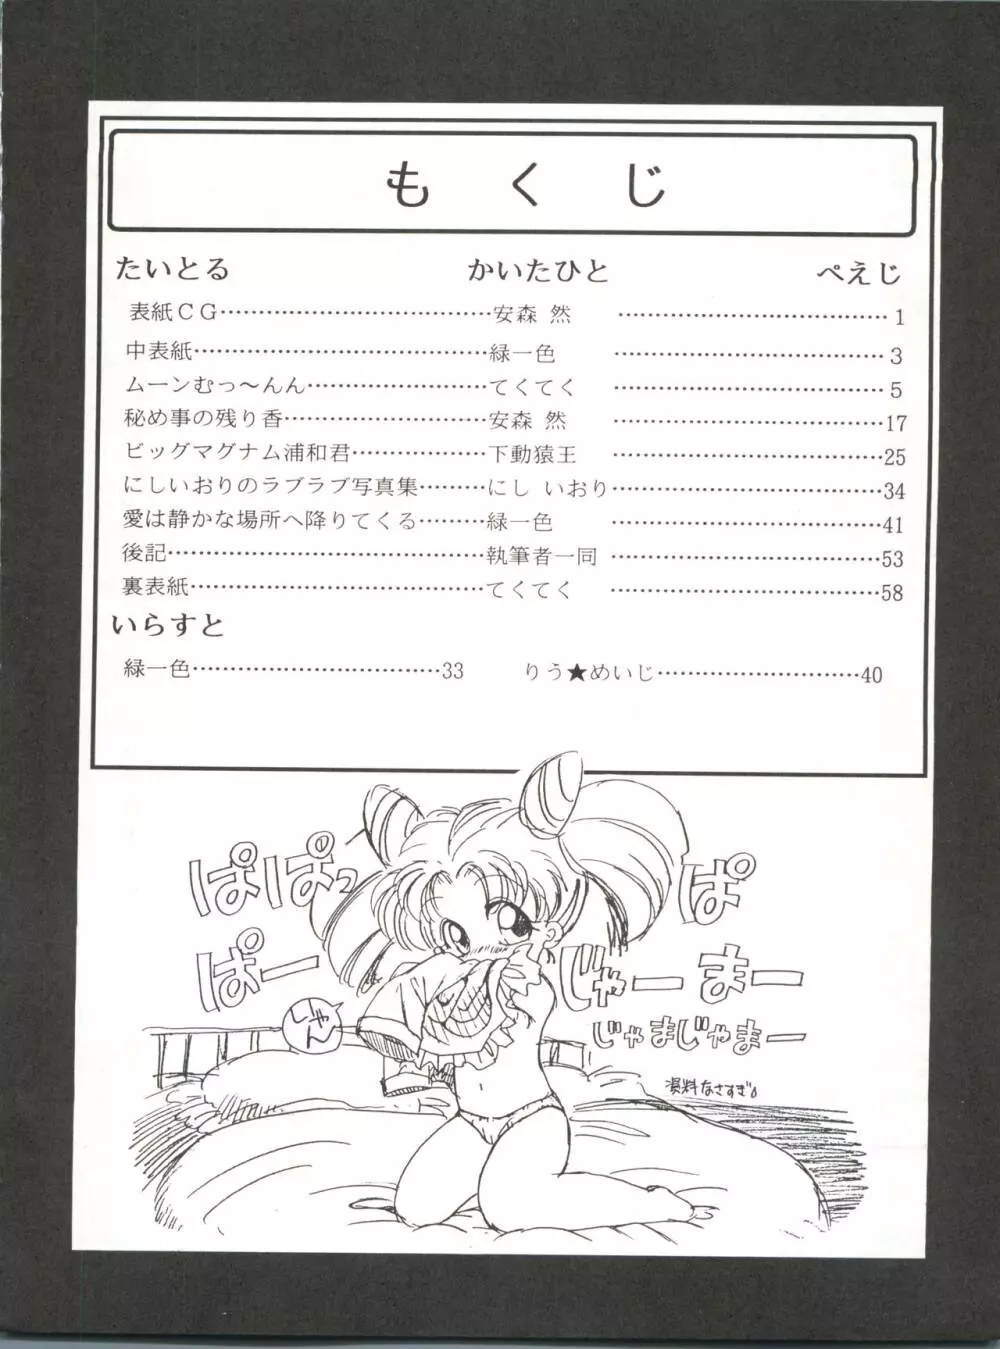 もくじ
たいとる かいたひと ぺえじ
表紙CG……………………………安森 然 ……………………………1
中表紙……………………………緑一色 ……………………………3
ムーンむっ〜んん…………………てくてく ……………………………5
秘め事の残り香……………………安森 然 ……………………………17
ビッグマグナム浦和君……………下動猿王 ……………………………25
にしいおりのラブラブ写真集………にし いおり……………………………34
愛は静かな場所へ降りてくる………緑一色 ……………………………41
後記………………………………執筆者一同 ……………………………53
裏表紙……………………………てくてく ……………………………58
いらすと
緑一色…………………………33 りう★めいじ……………………40
ぱぱぱっ
ぱ
ぱー
じゃーまー
しゃん
じゃまじゃまー
資料なさすぎ